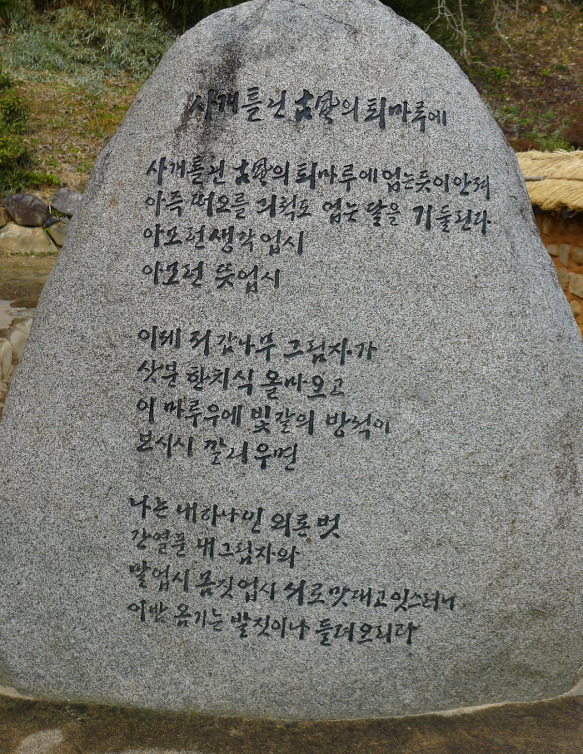 사개틀닌 古風의 퇴마루에
사개틀닌 古風의 퇴마루에 업는듯이 안져
아즉 떠오를 긔척도 업는 달을 기둘린다
아모런 생각업시
아모런 뜻업시
이제 저 감나무 그림자가
삿분 한치식 올마오고
이 마루우에 빛갈의 방석이
보시시 깔리우면
나는 내하나인 외론 벗
간열푼 내그림자와
말업시 몸짓업시 서로맛대고잇스려니
이밤 옴기는 발짓이나 들려오리라